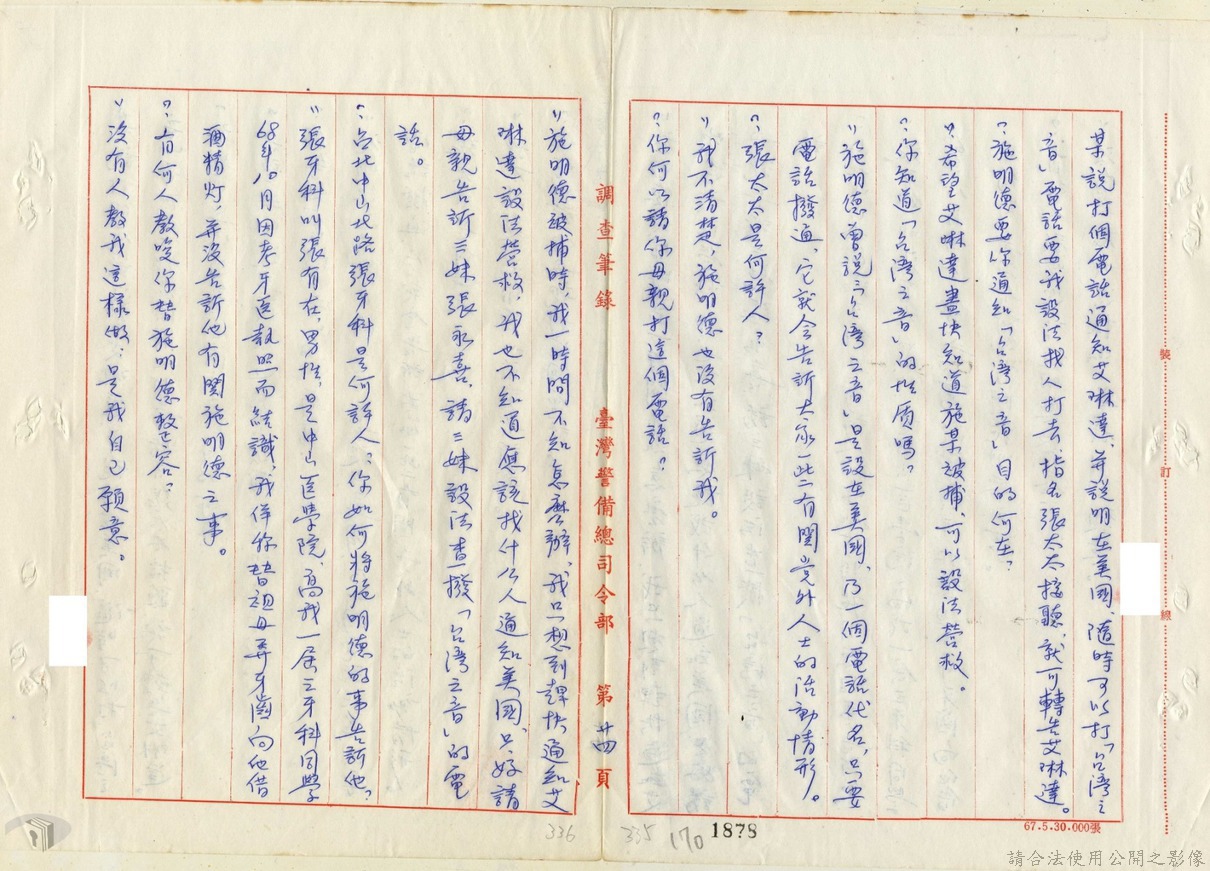 某說打個電話通知艾琳達，并說明在美國，隨時可以打「台湾之
音」電話要我設法找人打去指名張太太接聽，就可轉告艾琳達。
?施明德要你通知「台湾之音」目的何在？
"希望艾琳達盡快知道施某被捕，可以設法营救。
?你知道「台湾之音」的性质嗎？
"施明德曾說「台湾之音」是設在美國，乃一個電話代名，只要
電話撥通，它就会告訴大家一些有関党外人士的活動情形。
?張太太是何許人？
"我不清楚，施明德也没有告訴我。
?你何以請你母親打這個電話？
調查筆錄
臺灣警備總司令部
第廿四頁
"施明德被捕時，我一時間不知怎麽辦，我只想到趕快通知艾
琳達設法营救，我也不知道應該找什么人通知美國，只好請
母親告訴三妹張永喜，請三妹設法查撥「台湾之音」的電
話。
?台北中山北路張牙科是何許人？你如何將施明德的事告訴他？
"張牙科叫張有在，男性，是中山医學院高我一屆之牙科同學
68年10月因考牙医執照而結識，我佯称替祖母弄牙齒向他借
酒精灯，并没告訴他有関施明德之事。
?有何人教唆你替施明德整容？
"没有人教我這樣做；是我自己願意。
裝
訂
線
67.5.30.000張
1878
170
335
336
請合法使用公開之影像